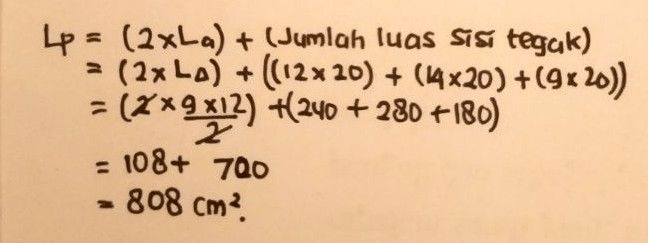 Lp = (2xLa) + (Jumlah luas sisi tegak)
= (2 x LΔ) + ((12 x 20) + (14 x 20) + (9 x 20))
= (2 x 9 x 12 / 2) + (240 + 280 + 180)
= 108 + 700
= 808 cm².